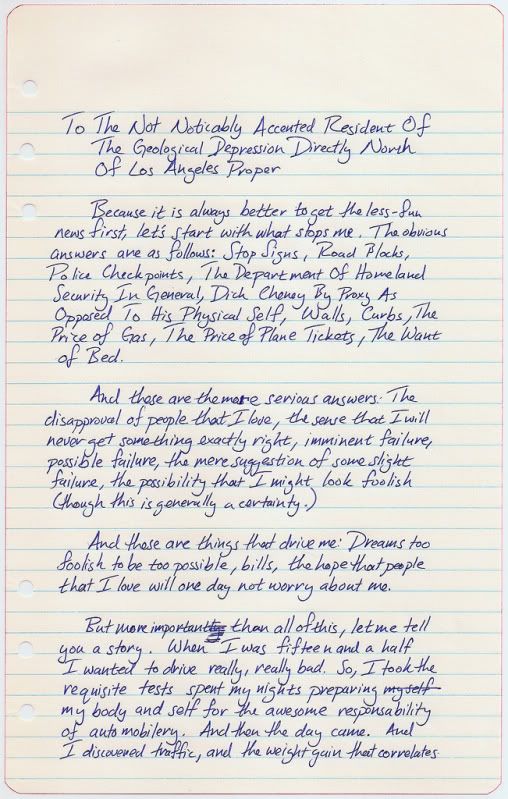 To The Not Noticably Accented Resident Of
The Geological Depression Directly North
Of Los Angeles Proper
Because it is always better to get the less-fun
news first, let's start with what stops me. The obvious
answers are as follows: Stop Signs, Road Blocks,
Police Checkpoints, The Department Of Homeland
Security In General, Dick Cheney By Proxy As
Opposed To His Physical Self, Walls, Curbs, The
Price of Gas, The Price of Plane Tickets, The Want
of Bed.
And these are the more serious answers: The
disapproval of people that I love, the sense that I will
never get something exactly right, imminent failure,
possible failure, the mere suggestion of some slight
failure, the possibility that I might look foolish
(though this is generally a certainty.)
And those are things that drive me: Dreams too
foolish to be too possible, bills, the hope that people
that I love will one day not worry about me.
But more important than all of this, let me tell
you a story. When I was fifteen and a half
I wanted to drive really, really bad. So, I took the
requisite tests spent my nights preparing myself
my body and self for the awesome responsability
of automobilery. And then the day came. And
I discovered traffic, and the weight gain that correlates